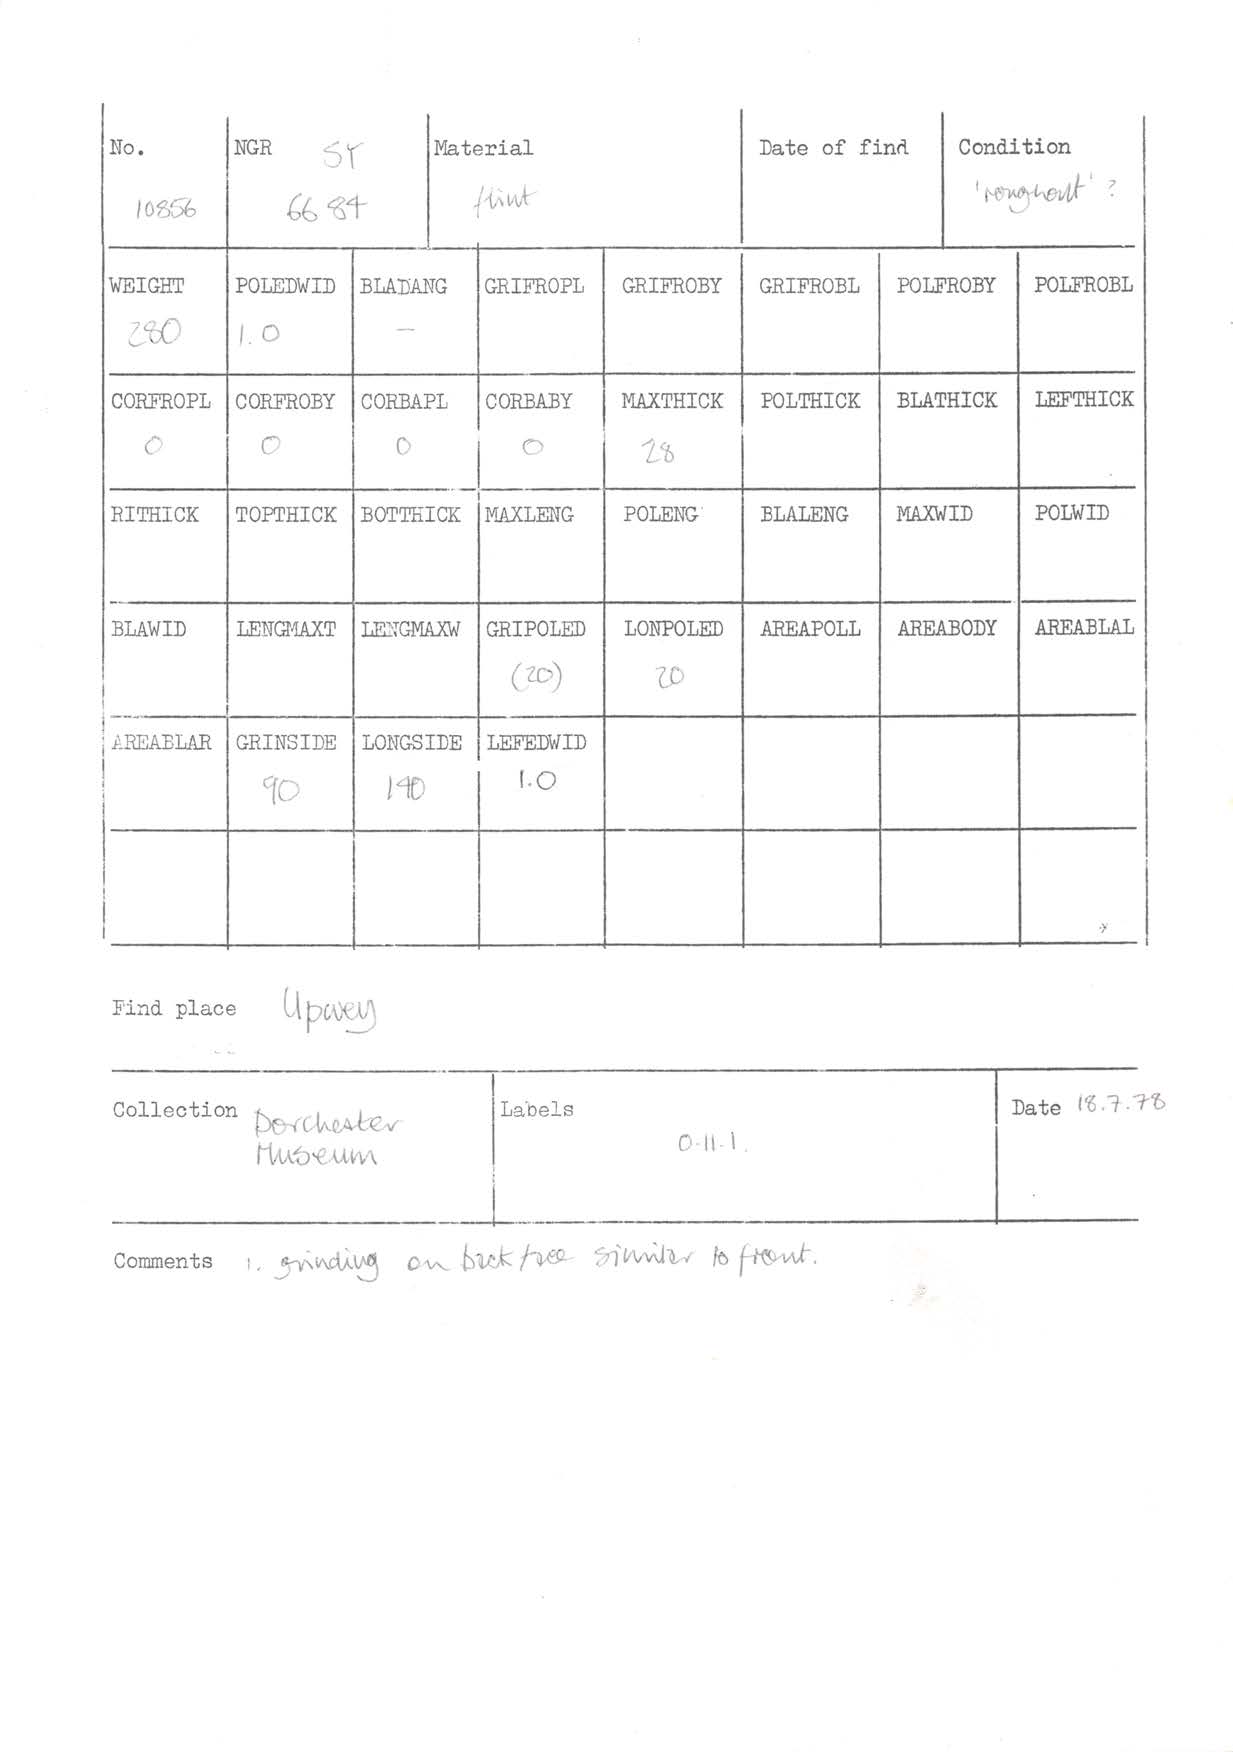 No. NGR SY Material Date of find Condition
10856 6684 flint 'roughout' ?
WEIGHT POLEDWID BLADANG GRIFROPL GRIFROBY GRIFROBL POLFROBY POLFROBL
280 1.0 —
CORFROPL CORFROBY CORBAPL CORBABY MAXTHICK POLTHICK BLATHICK LEFTHICK
0 0 0 0 28
RITHICK TOPTHICK BOTTHICK MAXLENG POLENG BLALENG MAXWID POLWID
BLAWID LENGMAXT LENGMAXW GRIPOLED LONPOLED AREAPOLL AREABODY AREABLAL
(20) 20
AREABLAR GRINSIDE LONGSIDE LEFEDWID
90 140 1.0
Find place Upwey
Collection Dorchester Labels Date 18.7.78
Museum 0.11.1.
Comments 1. grinding on back face similar to front.